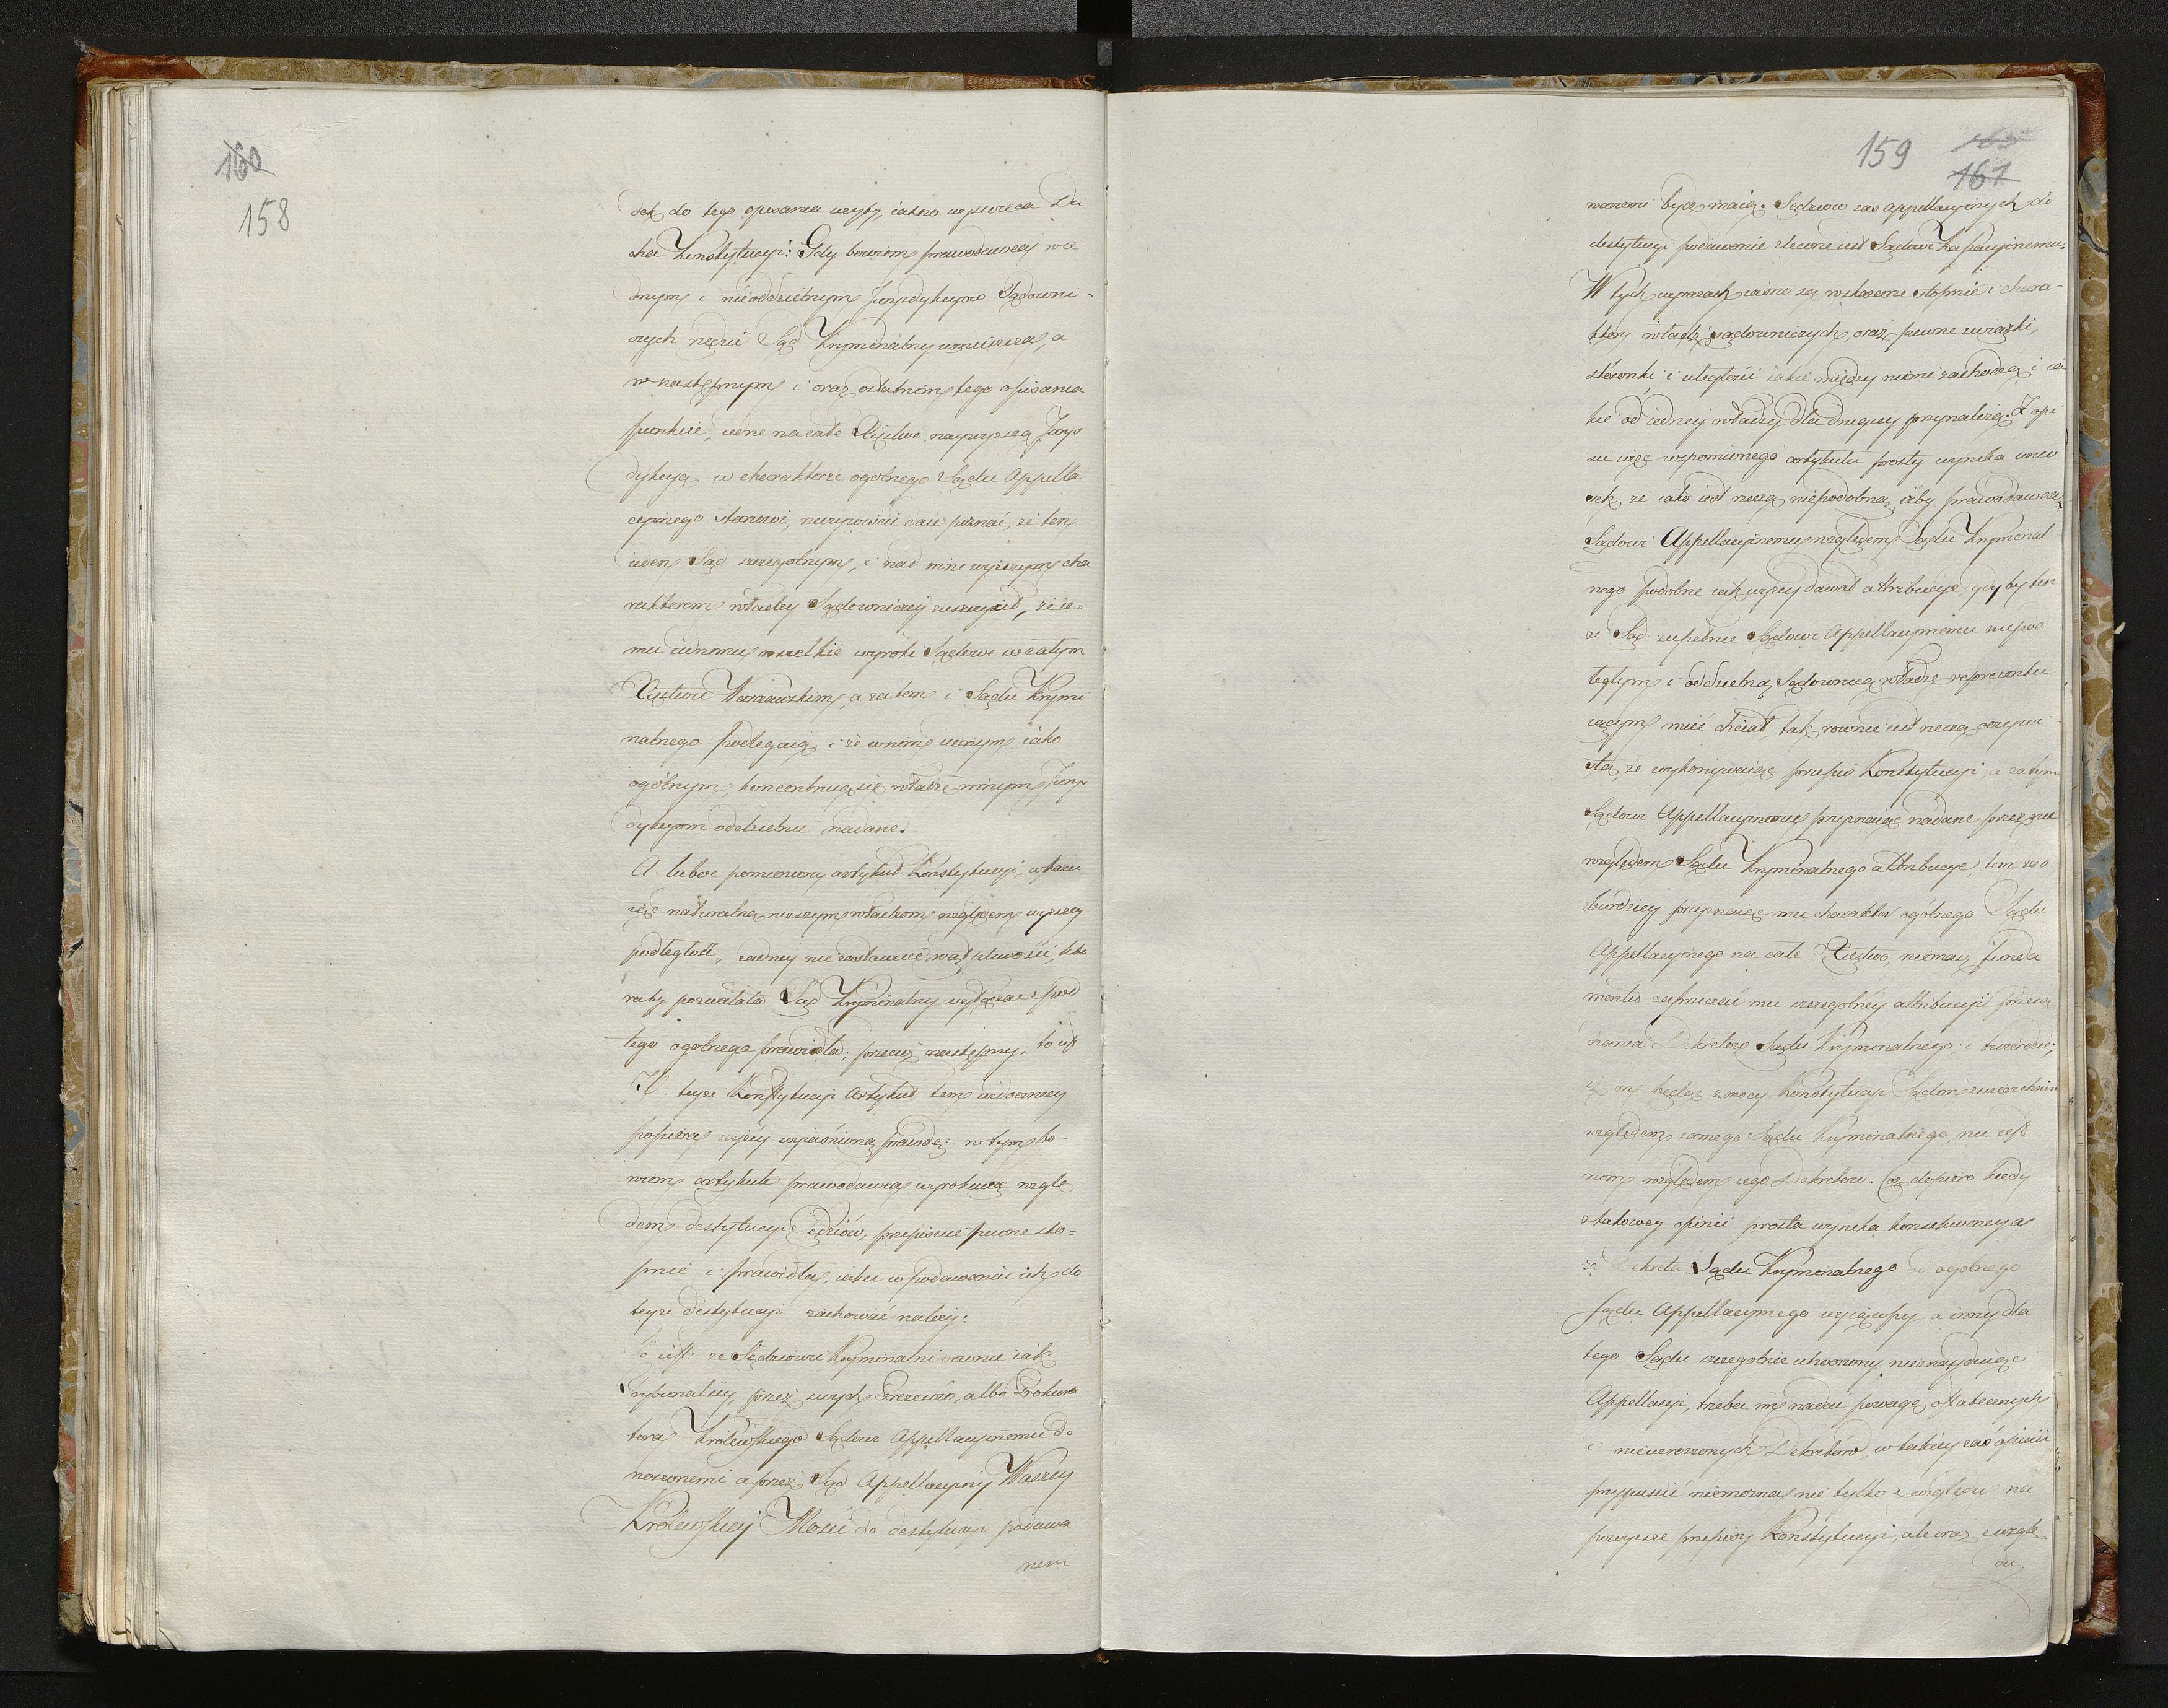 160
158
sek do tego opisania użyty, iasno wyświeca Du
cha Konstytucyi: Gdy bowiem prawodawcy we
dnym i nieoddzielnym Juryzdykcyow Sądowni-
czych rzędzie Sąd Kryminalny umieszcza, a
w następnym i oraz ostatnim tego opisania
punkcie, iedne na całe Xięstwo naywyższą Jury
dykcyą w charakterze ogólnego Sądu Appella
cyinego stanowi, oczywiście daie poznać, że ten
ieden Sąd szczególnym, i nad inne wyższym cha
rakterem władzy Sądowniczey zaszczycił, że ie-
mu iednemu wszelkie wyroki Sądowe w całym
Xięstwie Warszawskim, a zatem i Sądu Krymi
nalnego podlegaią, i że w nim iednym iako
ogólnym, koncentruią się władze innym Jury
dykcyom oddzielnie nadane.
A lubo pomieniony artykuł Konstytucyi, wskazu
iąc naturalną niższym władzom względem wyższey
podległość, żadney nie zostawuie wątpliwości, któ
raby pozwalała Sąd Kryminalny wyłączać z pod
tego ogolnego prawidła; przecież następny, to iest
teyże Konstytucyi Artykuł tem widoczniey
popiera wyżey wyiaśnioną prawdę: w tym bo-
wiem artykule prawodawca wyrokuiąc wzglę
dem destytucyi Sędziów, przepisuie pewne sto-
pnie i prawidła, iakie w podawaniu ich do
teyże destytucyi zachować należy:
To iest: że Sędziowie Kryminalni równie iak
Trybunalscy, przez swych Prezesów, albo Prokura
tora Królewskiego Sądowi Appellacyinemu do
noszonemi a przez Sąd Appellacyiny Waszey
Królewskiey Mości do destytucyi podawa
nemi
159
165
161
wanemi być maią. Sędziów zaś appellacyinych do
destytucyi podawanie zlecone iest Sądowi Kassacyinemu.
W tych wyrazach iasno są wskazane stopnie i chara-
ktery władz sądowniczych, oraz pewne związki,
stósunki i uległości iakie między niemi zachodzą i ia
kie od iedney władzy dla drugiey przynależą. Z opi
su więc wspomnionego artykułu prosty wynika wnio
sek, że iako iest rzeczą niepodobną, iżby prawodawca
Sądowi Appellacyinemu względem Sądu Kryminal
nego podobne iak wyżey dawał attrybucye, gdyby ten
że Sąd zupełnie Sądowi Appellacyinemu niepod
ległym i oddzielną Sądowniczą władzę reprezentu
iącym mieć chciał, tak rownie iest rzeczą oczywi-
stą, że wykonywaiąc przepis Konstytucyi, a zatym
Sądowi Appellacyinemu przyznaiąc nadane przez nie
względem Sądu Kryminalnego attrybucye, tem zaś
bardziey przyznaiąc mu charakter ogólnego Sądu
Appellacyinego na całe Xięstwo, niemasz funda
mentu zaprzeczać mu szczególney attrybucyi przesą
dzania Dekretów Sądu Kryminalnego, i twierdzić,
iż on będąc z mocy Konstytucyi Sądem zwierzchnim
względem samego Sądu Kryminalnego, nie iest
nim względem iego Dekretów. Cóż dopiero kiedy
z takowey opinii prosta wynika konsekwencya
że Dekreta Sądu Kryminalnego od ogolnego
Sądu Appellacyinego wyiąwszy a inny dla
tego Sądu szczególnie utworzony nieznayduiąc
Appellacyi, trzeba im nadać powagę ostatecznych
i niewzruszonych Dekretów, w takiey zaś opinii
przypuścić niemożna nie tylko z względu na
powyższe przepisy Konstytucyi, ale oraz z wzglę
du